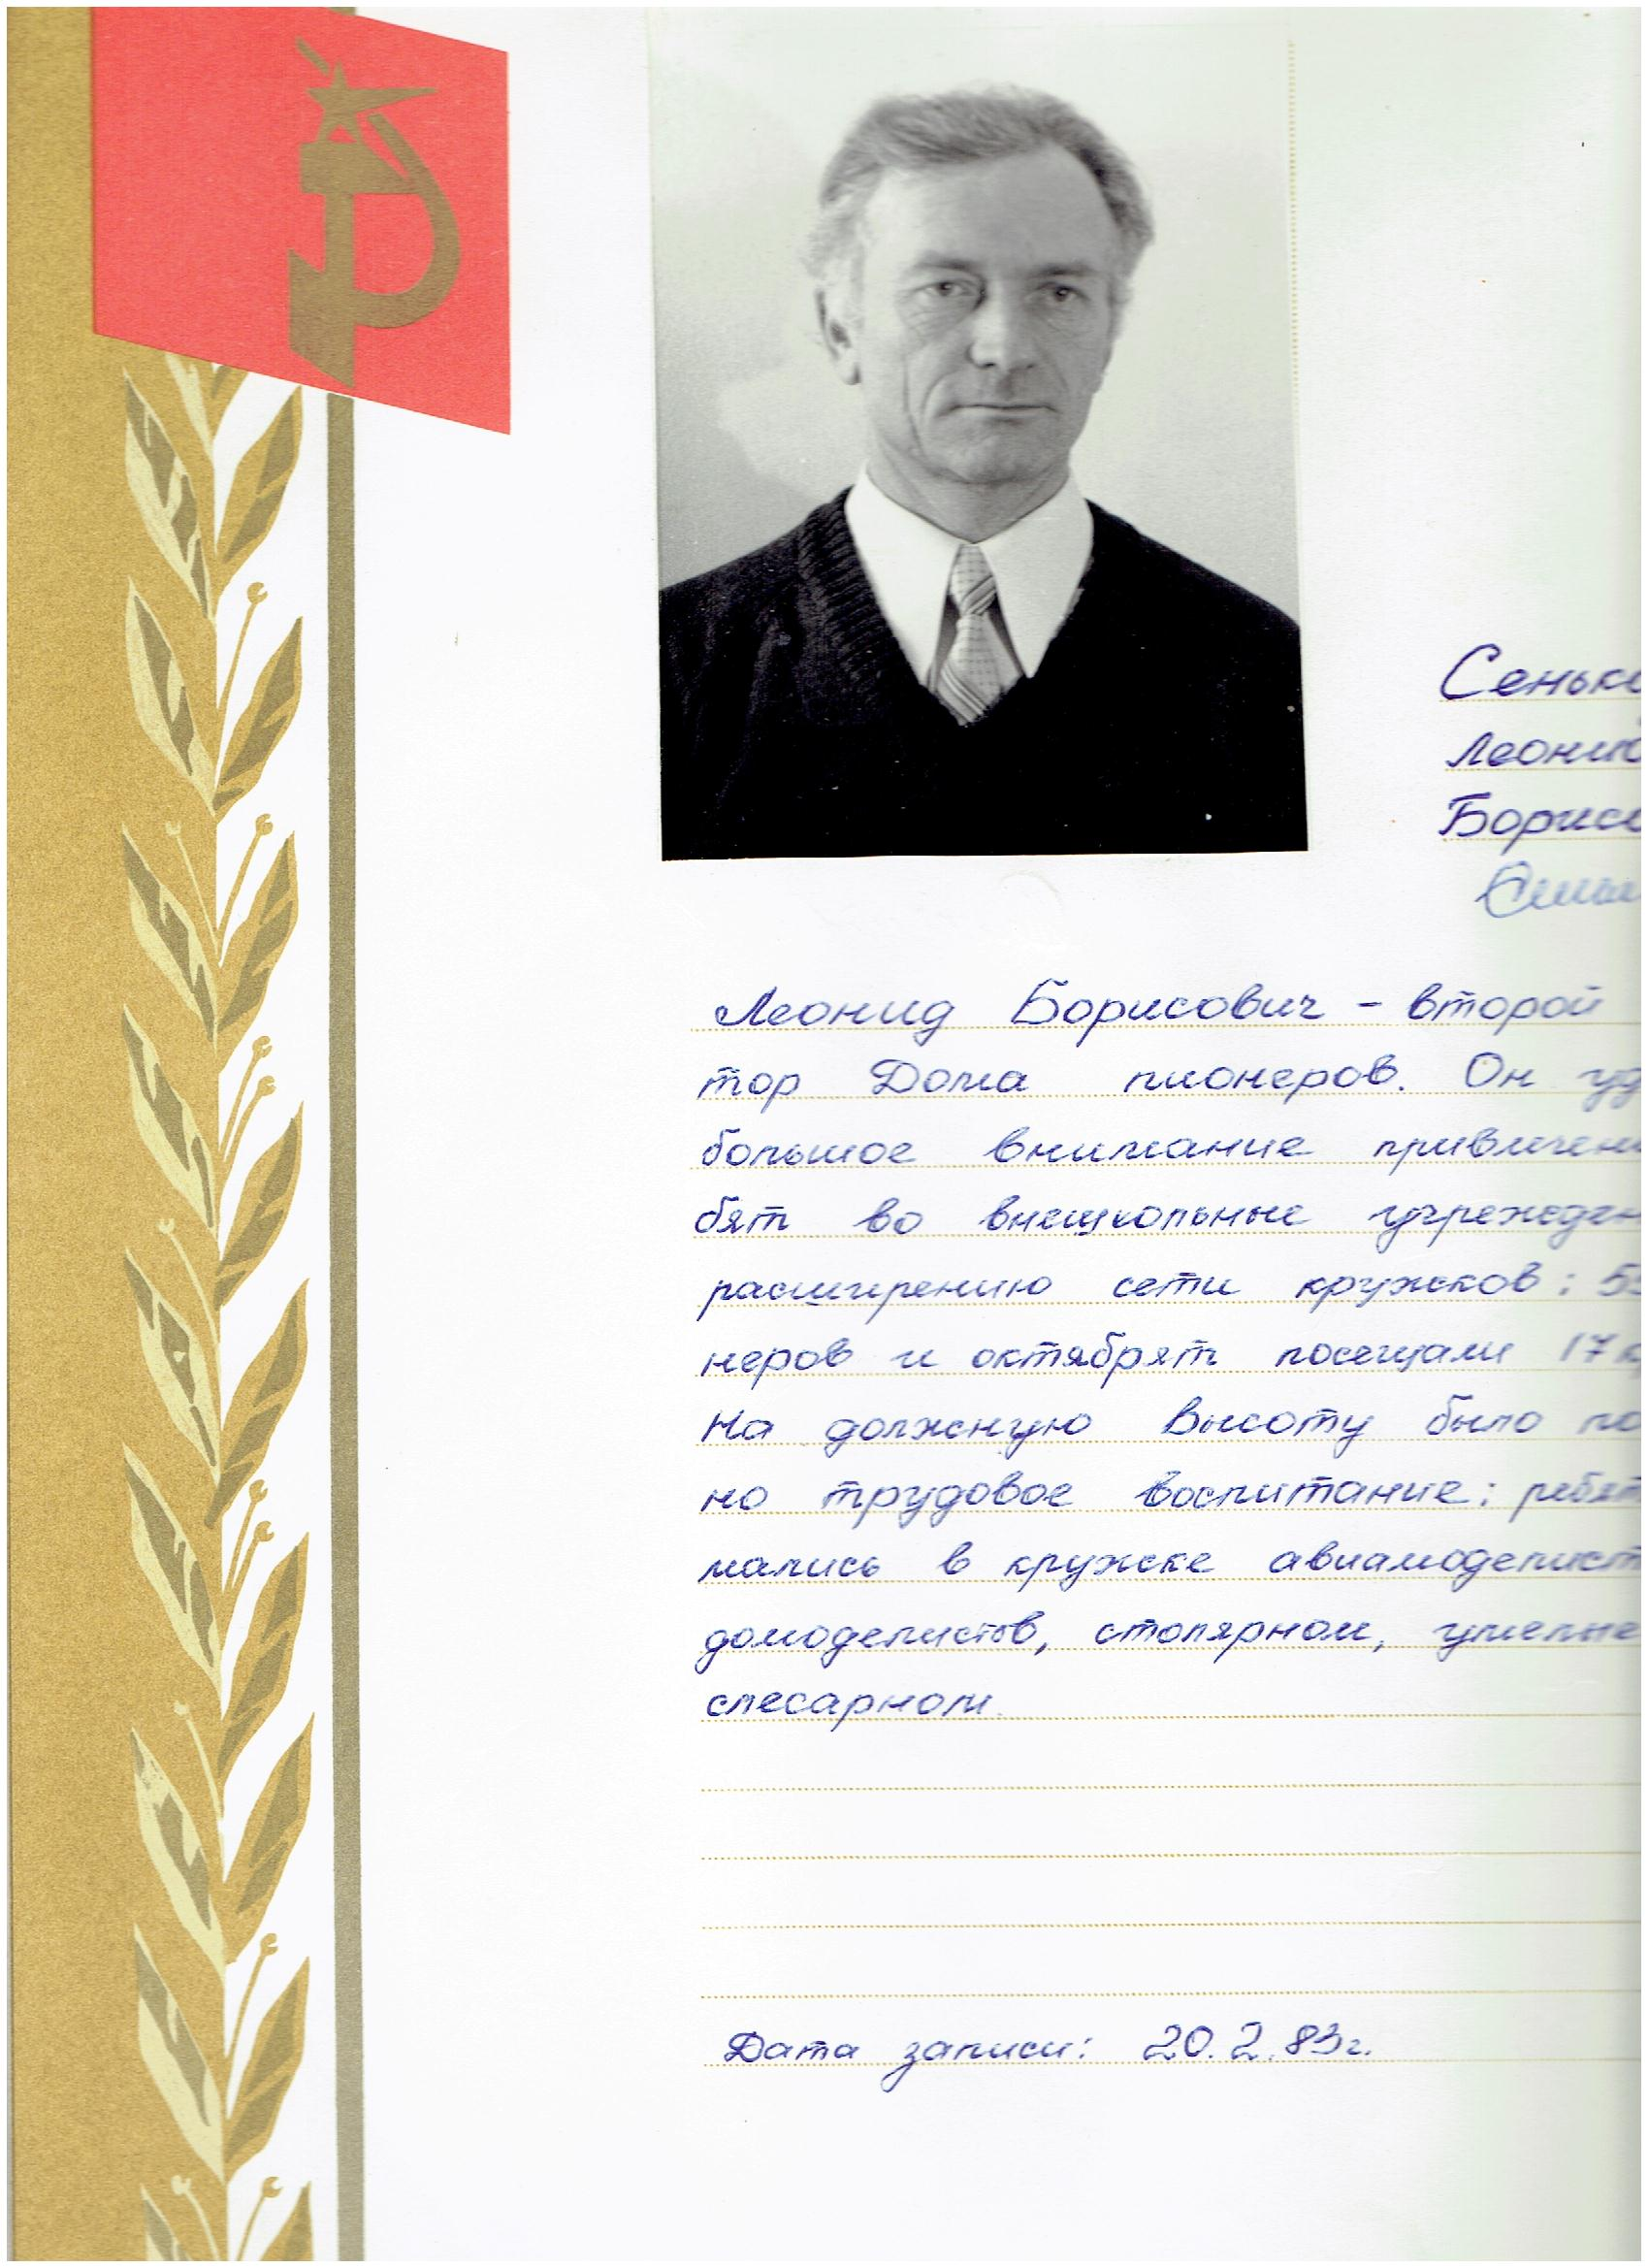 Сеньк
Леонид
Борисо
Леонид Борисович - второй
тор Дома пионеров. Он уд
большое внимание привлечени
бят во внешкольные учрежден
расширению сети кружков: 5
неров и октябрят посещали 17 к
На должную высоту было по
но трудовое воспитание: ребят
мались в кружке авиамоделист
домоделистов, столярном, умелые
слесарном.
Дата записи: 20.2.83г.